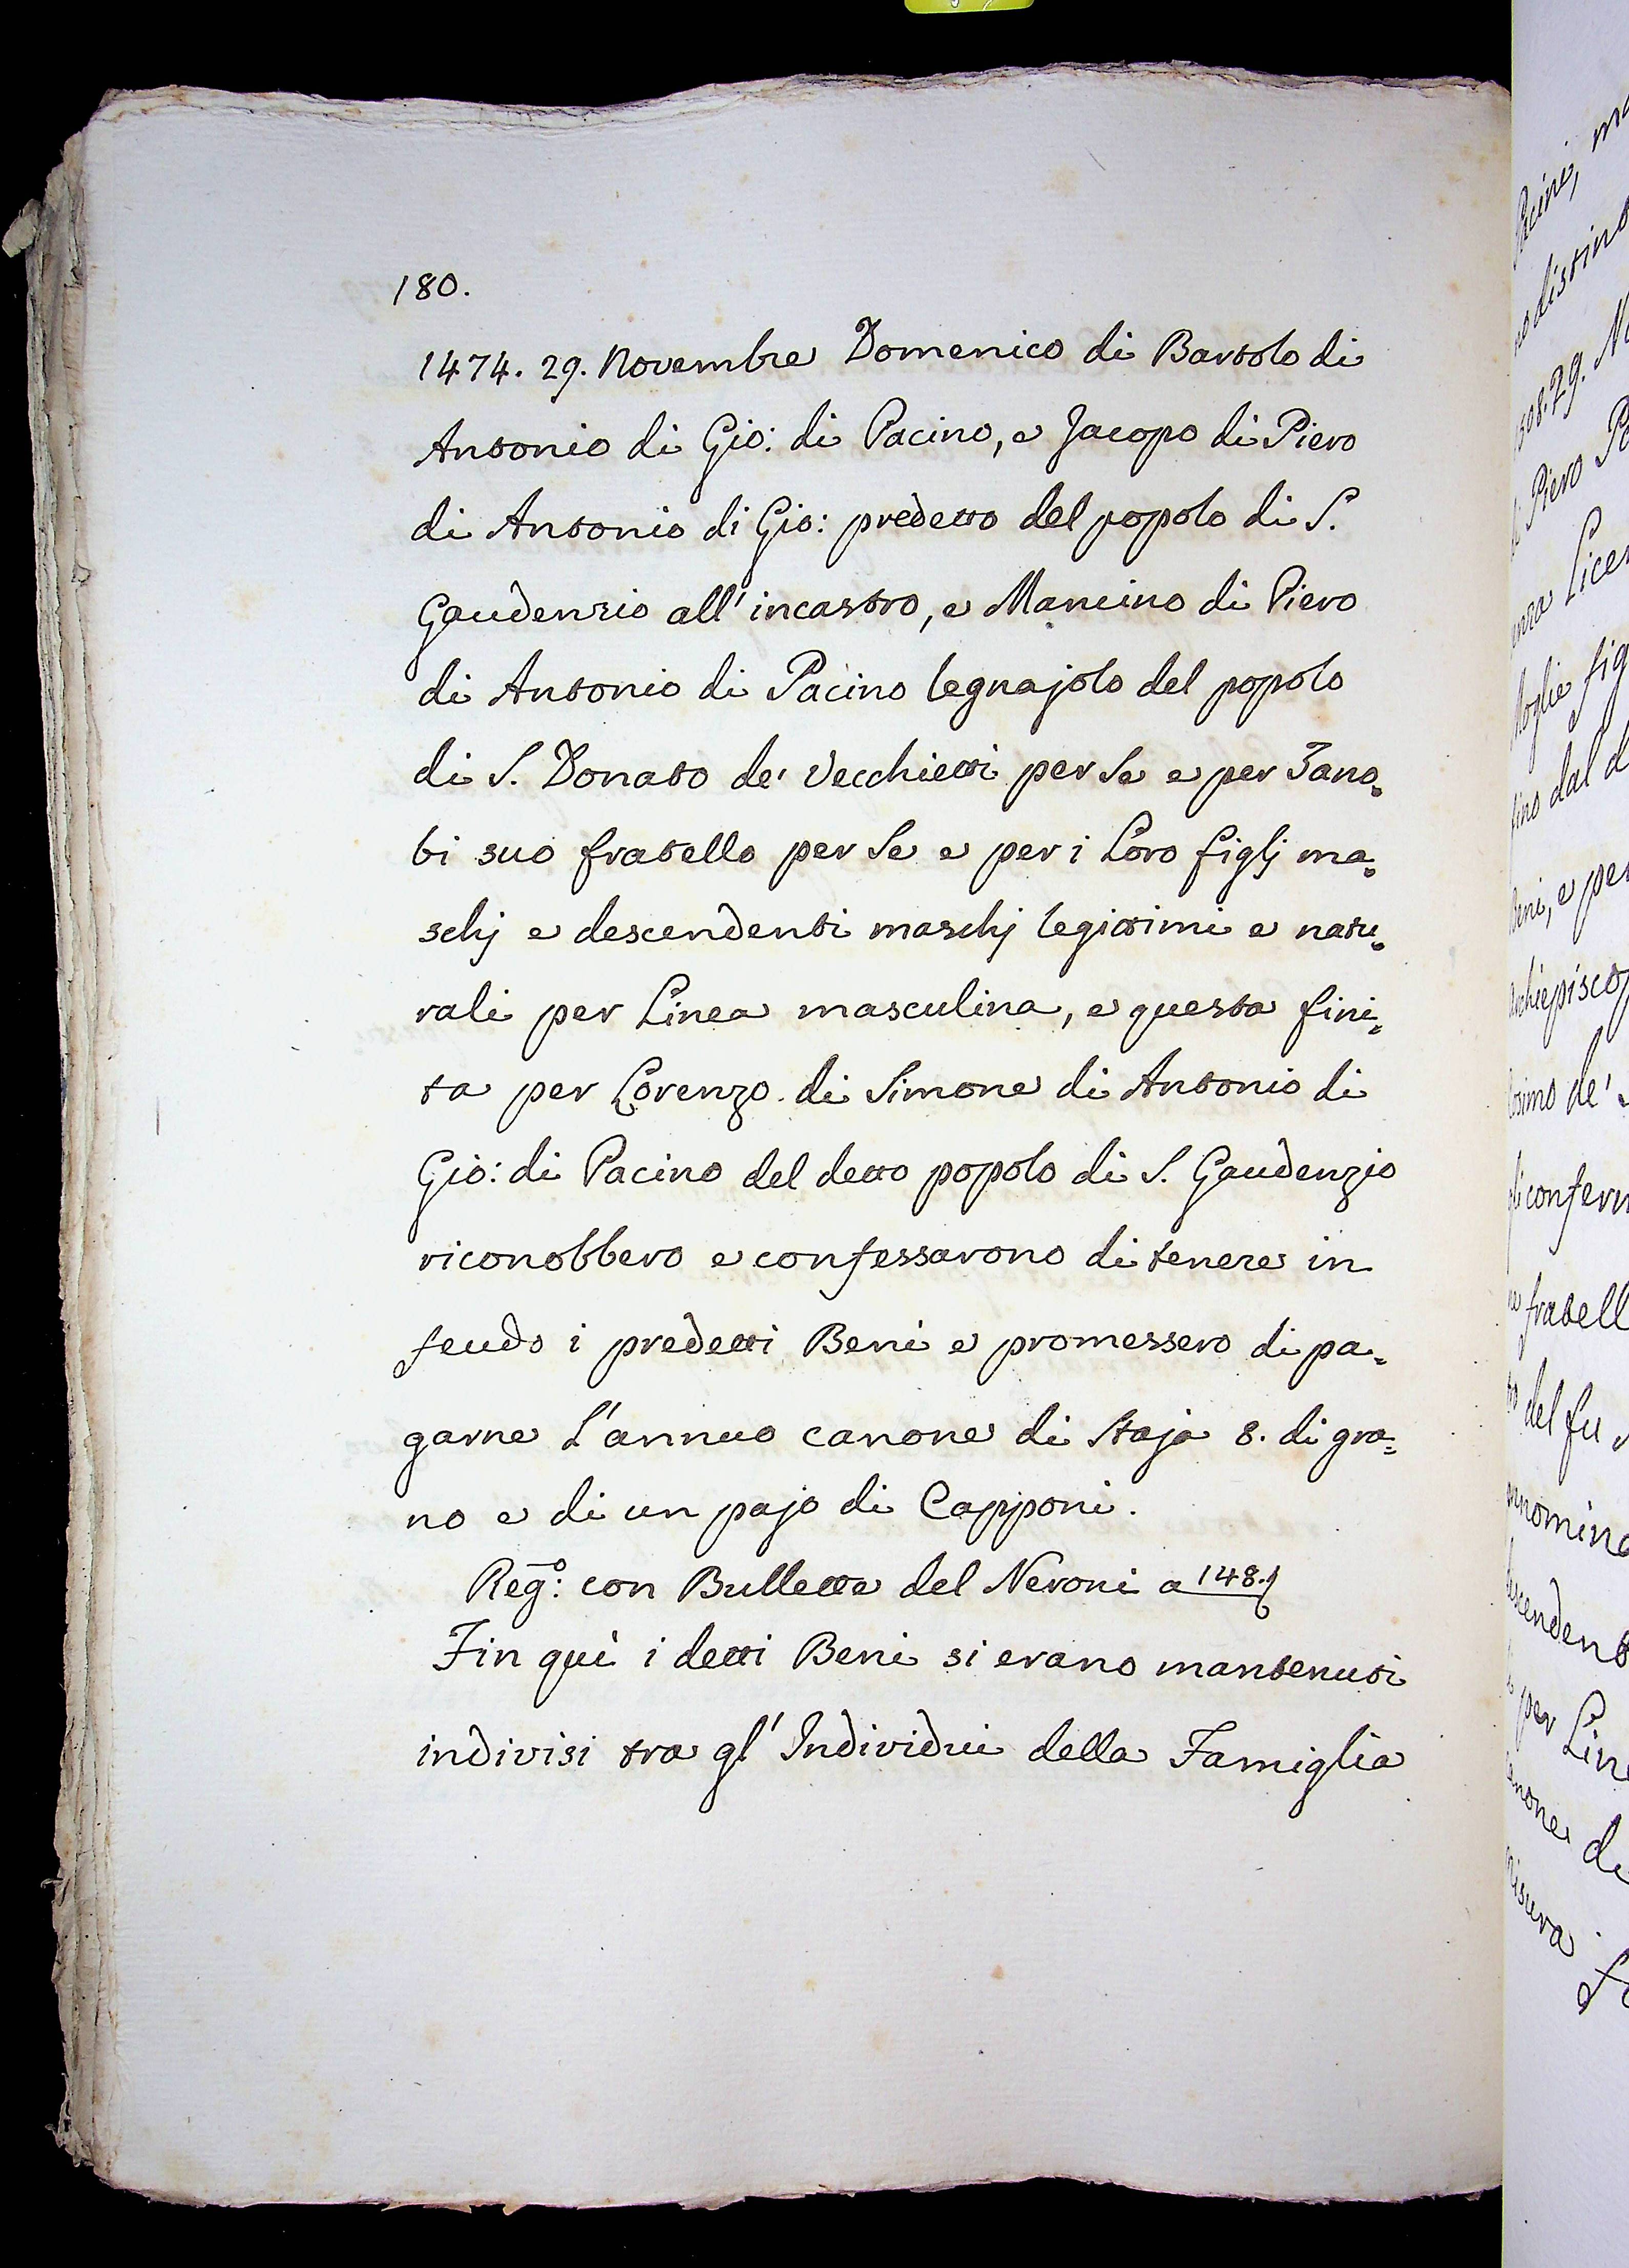 180.
1474. 29. Novembre Domenico di Bartolo di
Antonio di Gio: di Pacino, e Jacopo di Piero
di Antonio di Gio: predetto del popolo di S.
Gaudenzio all' incastro, e Mancino di Piero
di Antonio di Pacino legnajolo del popolo
di S. Donato de' Vecchietti per Se e per Zano=
bi suo fratello per Se e per i Loro figlj ma=
schj e descendenti maschj legittimi e natu=
rali per Linea masculina, e questa fini=
ta per Lorenzo di Simone di Antonio di
Gio: di Pacino del detto popolo di S. Gaudenzio
riconobbero e confessarono di tenere in
feudo i predetti Beni e promessero di pa=
garne L'annuo canone di Staja 8. di gra=
no e di un pajo di Capponi.
Reg:o con Bullette del Neroni a 148.
Fin quì i detti Beni si erano mantenuti
indivisi tra gl' Individui della Famiglia
Pacini,
distin
1508. 29. N
Piero Pa
Lice
Moglie fig
dal d
Beni, e per
de'
confer
fratell
del fu
per Line
di